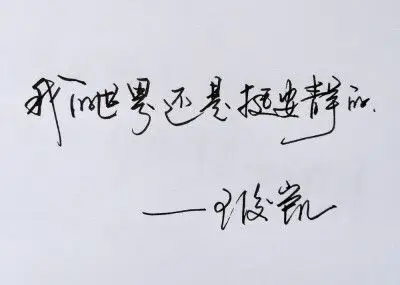 我的世界还是挺安静的.
——王俊凯